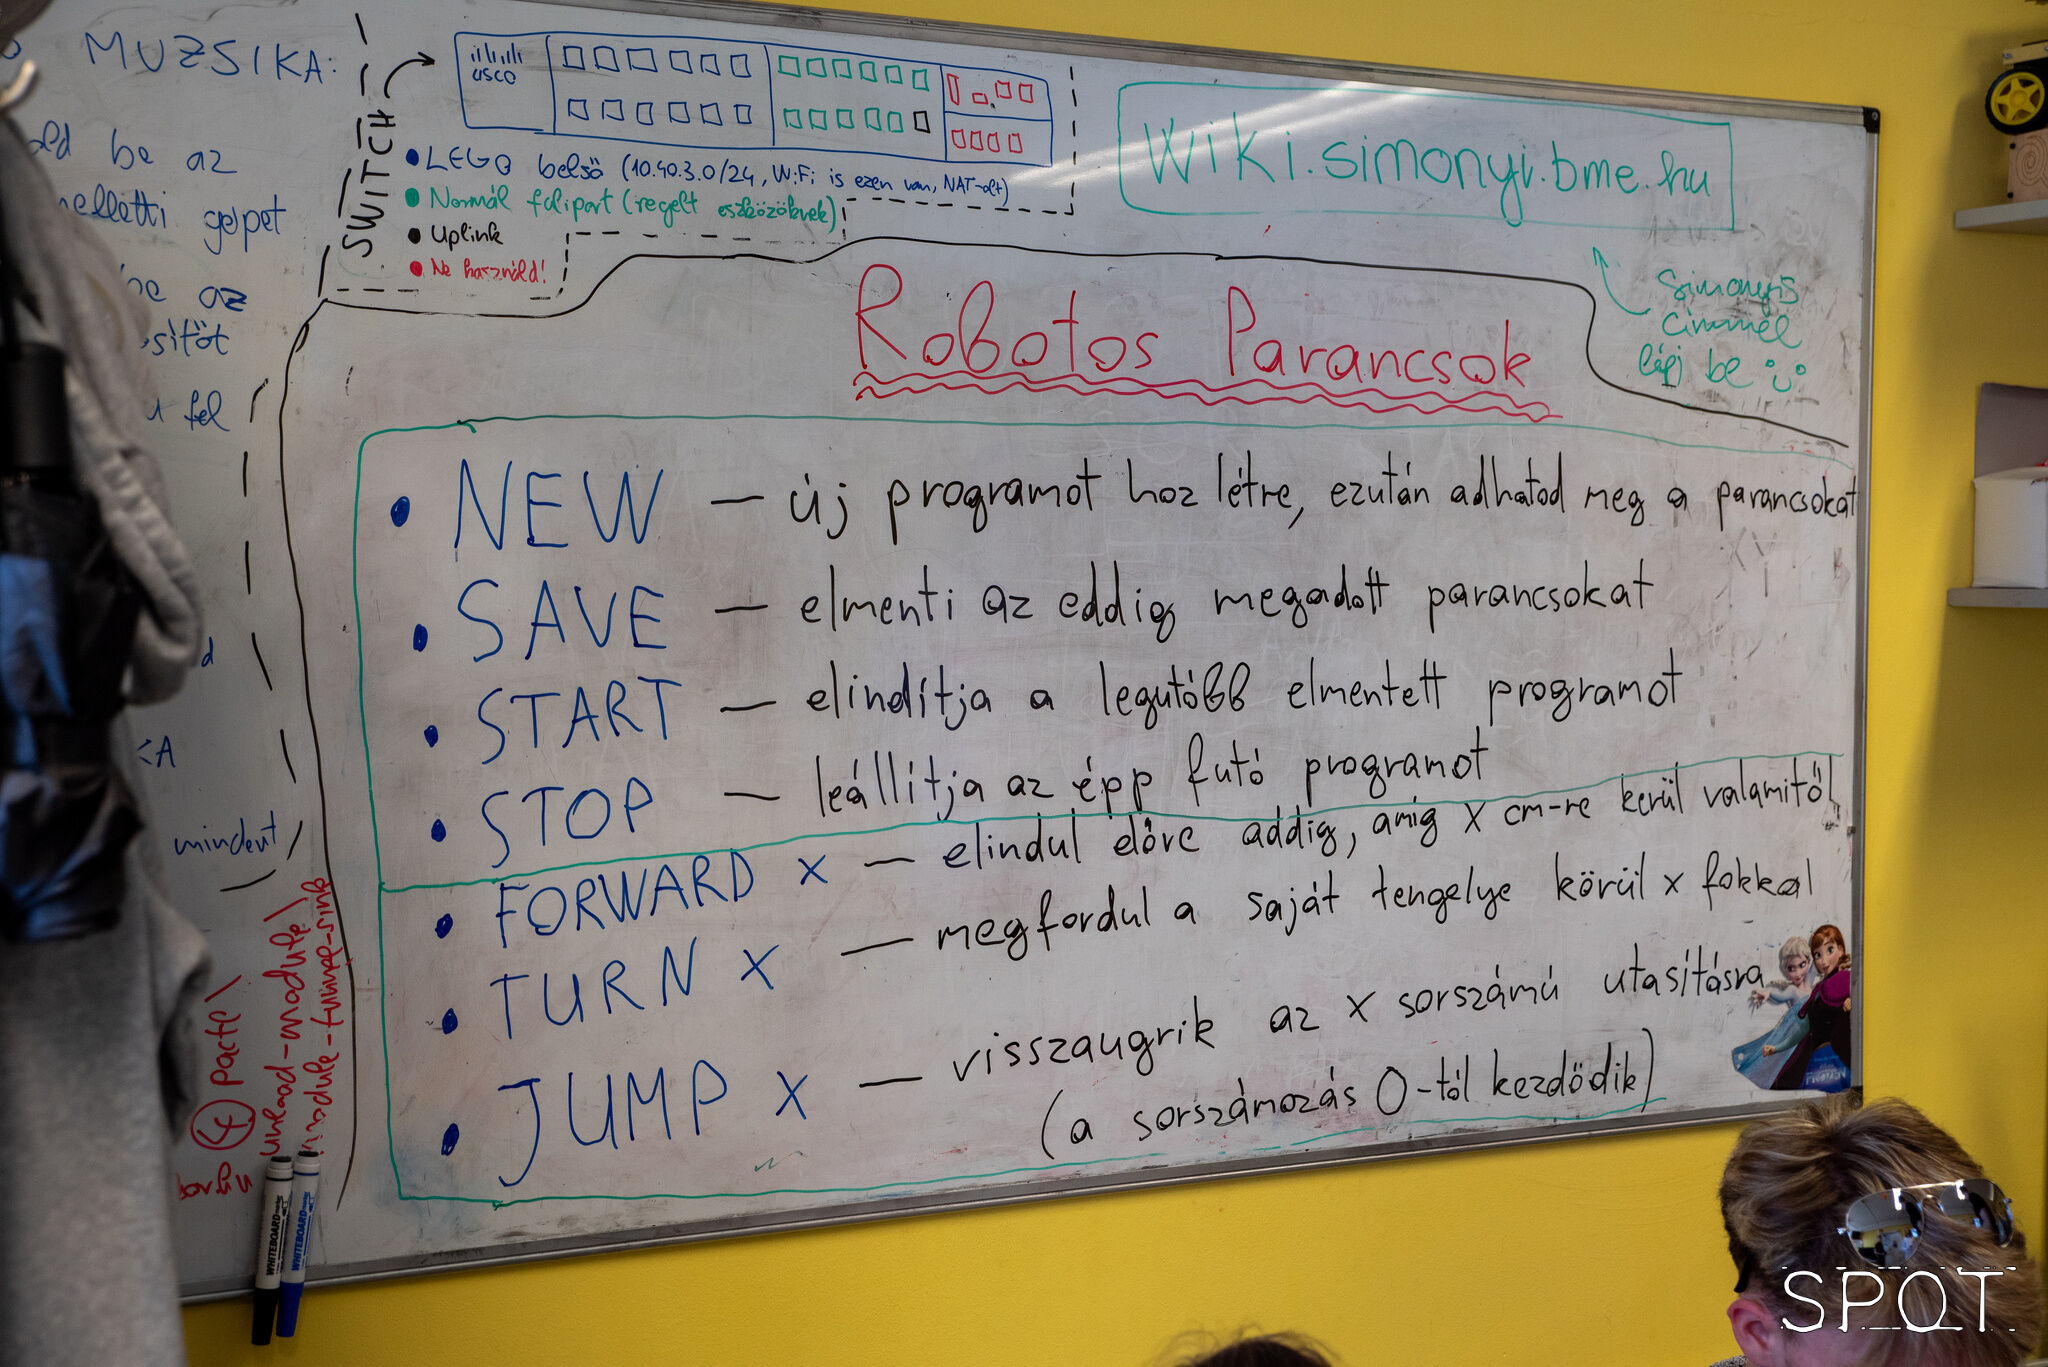 MUZSIKA:
be az
gépet
az
fel
mindent
SWITCH
cisco
• LEGO belső (10.40.3.0/24, WiFi is ezen van, NAT-olt)
• Normál falipart (regelt eszközöknek)
• Uplink
• Ne használd!
wiki.simonyi.bme.hu
Simonyis
címmel
lépj be
Robotos Parancsok
• NEW — új programot hoz létre, ezután adhatod meg a parancsokat
• SAVE — elmenti az eddig megadott parancsokat
• START — elindítja a legutóbb elmentett programot
• STOP — leállítja az épp futó programot
• FORWARD x — elindul előre addig, amíg x cm-re kerül valamitől
• TURN x — megfordul a saját tengelye körül x fokkal
• JUMP x — visszaugrik az x sorszámú utasításra
(a sorszámozás 0-tól kezdődik)
4 pactl
unload-module
WHITEBOARD
WHITEBOARD
SPOT